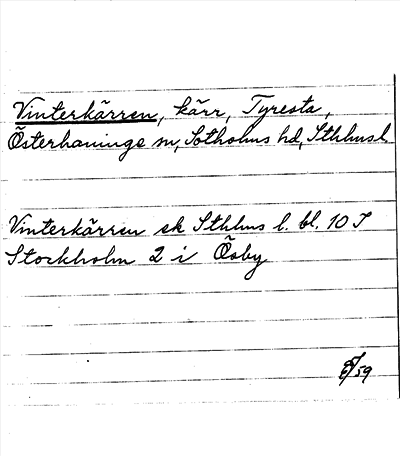 Vinterkärren, kärr, Tyresta,
Österhaninge sn, Sotholms hd, Sthlmsl.
Vinterkärren ek Sthlms l. bl. 10 I
Stockholm 2 i Ösby
/59